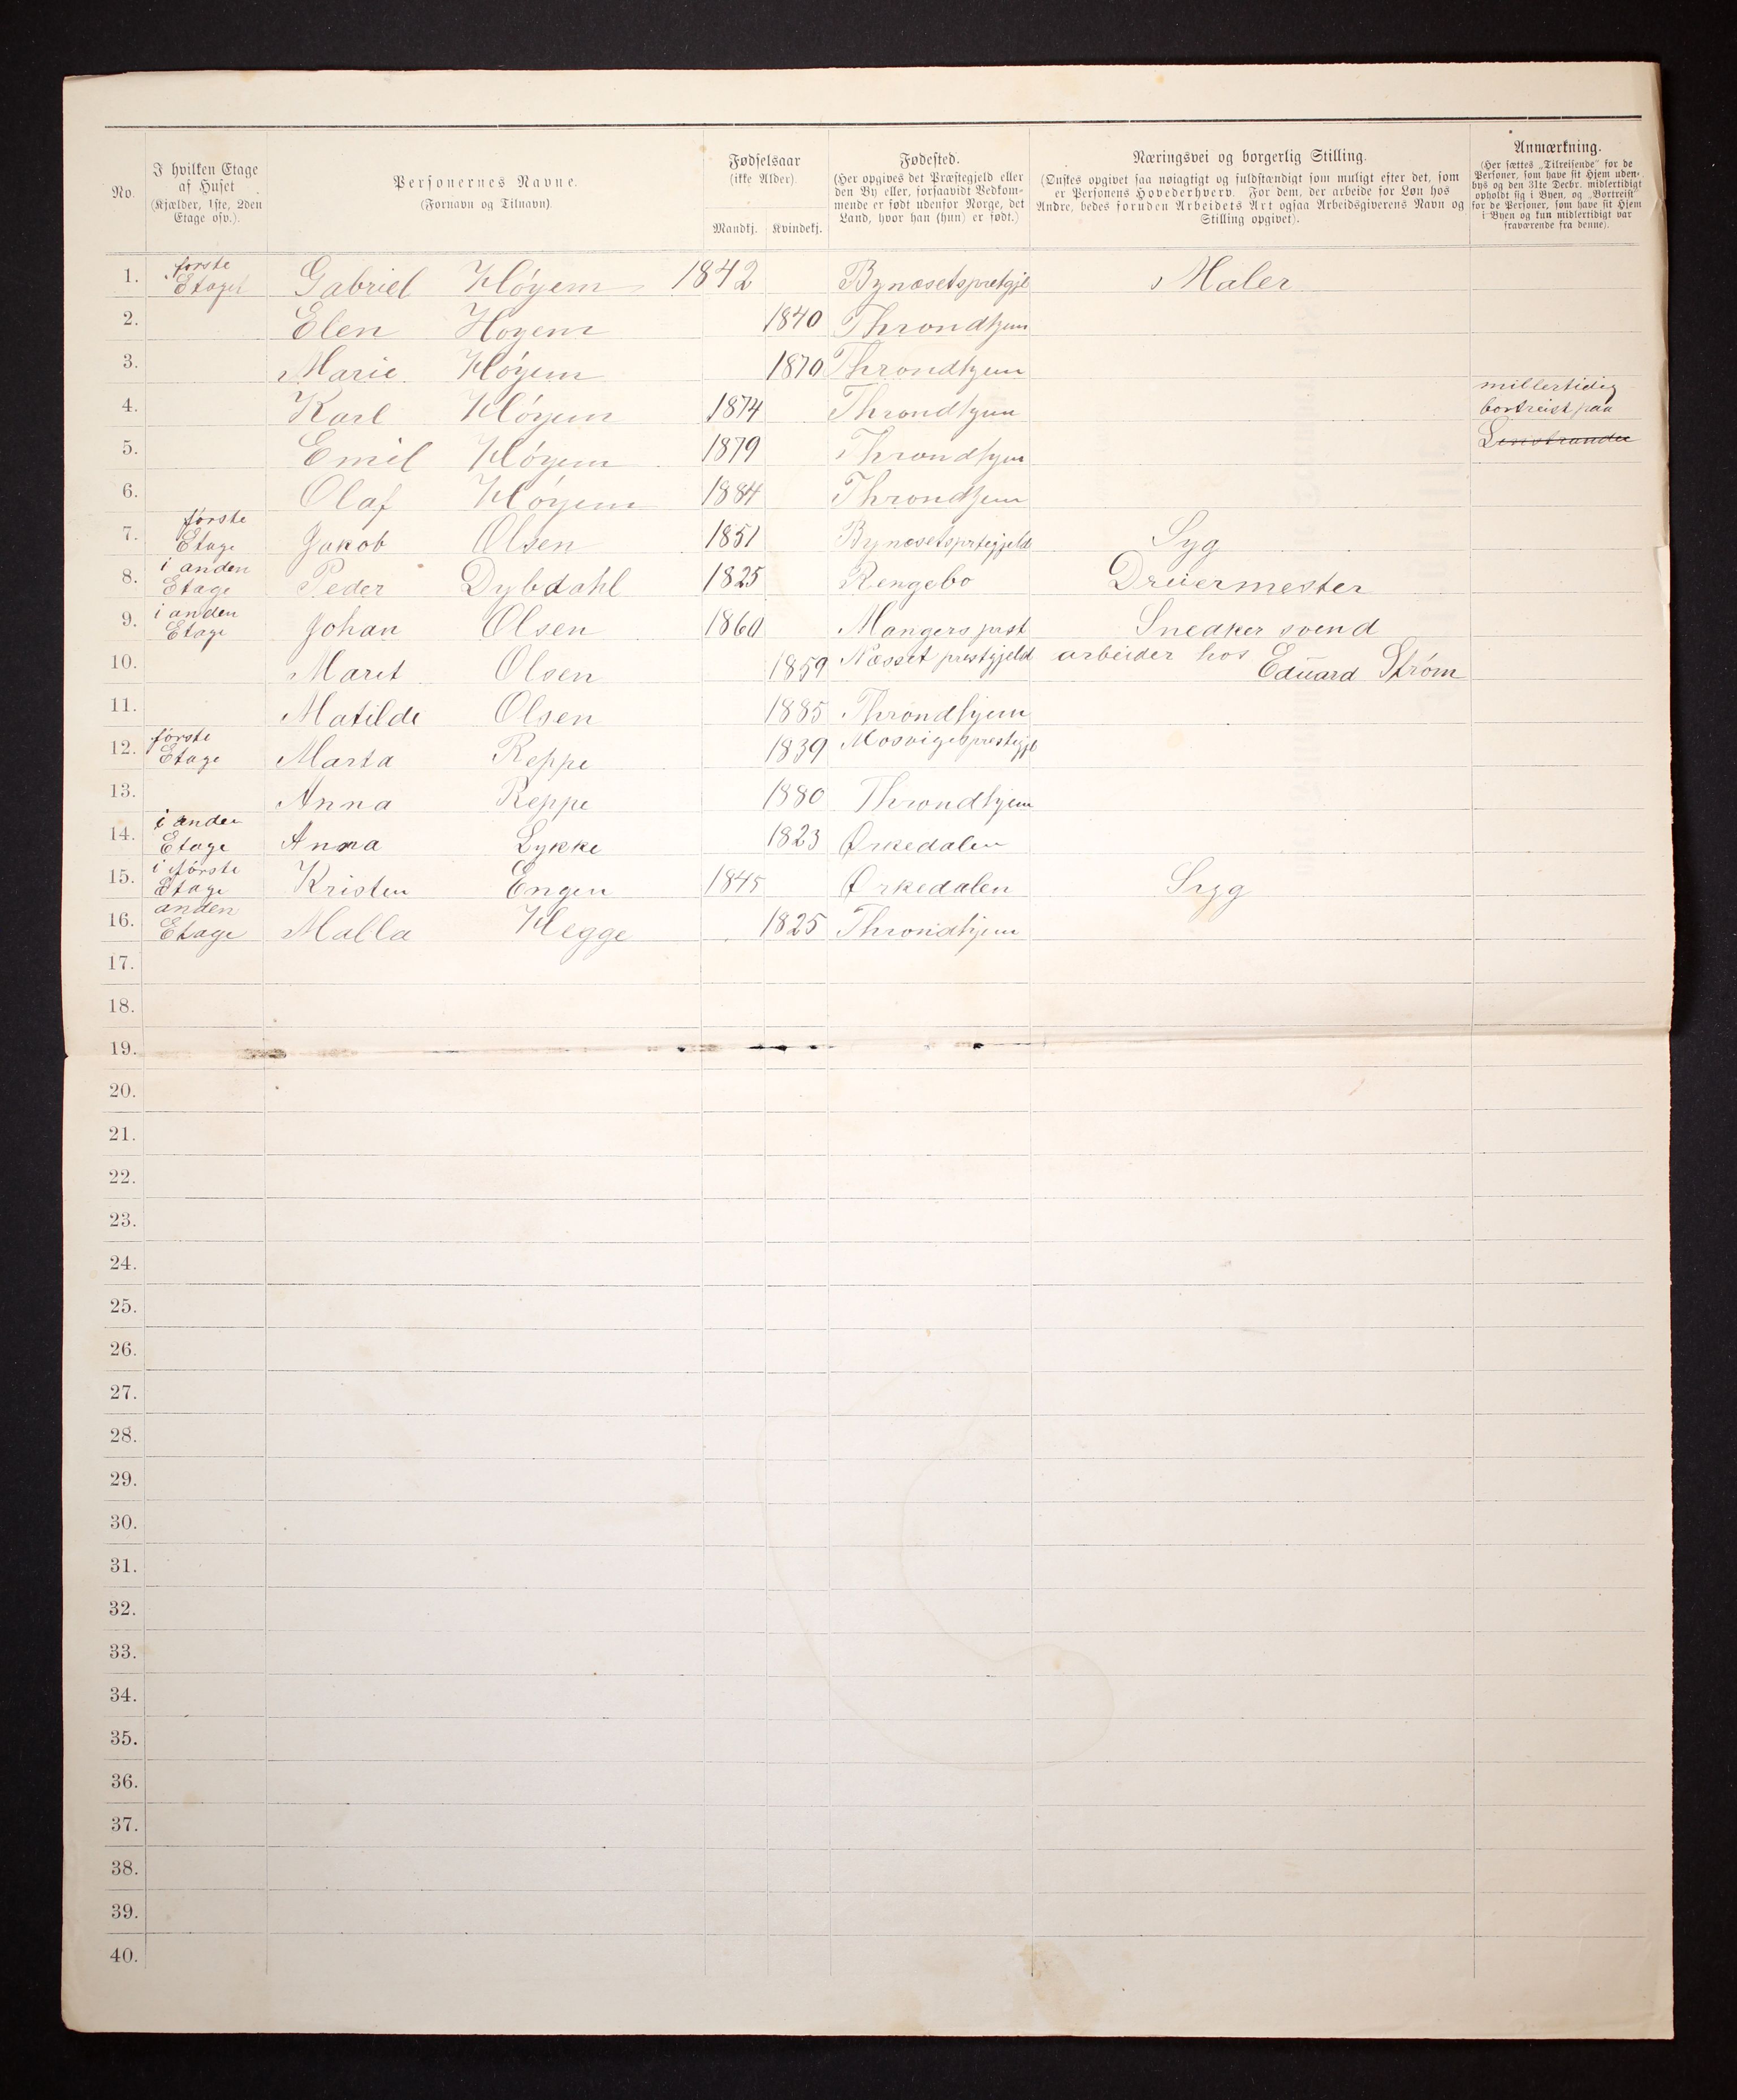 No.
I hvilken Etage
af Huset
(Kjælder, 1ste, 2den
Etage osv.).
Personernes Navne.
(Fornavn og Tilnavn).
Fødselsaar
(ikke Alder).
Mandkj. Kvindekj.
Fødested.
(Her opgives det Præstegjeld eller
den By eller, forsaavidt Vedkom-
mende er født udenfor Norge, det
Land, hvor han (hun) er født.)
Næringsvei og borgerlig Stilling.
(Ønskes opgivet saa nøiagtigt og fuldstændigt som muligt efter det, som
er Personens Hovederhverv. For dem, der arbeide for Løn hos
Andre, bedes foruden Arbeidets Art ogsaa Arbeidsgiverens Navn og
Stilling opgivet).
Anmærkning.
(Her sættes „Tilreisende” for de
Personer, som have sit Hjem uden-
bys og den 31te Decbr. midlertidigt
opholdt sig i Byen, og „Bortreist”
for de Personer, som have sit Hjem
i Byen og kun midlertidigt var
fraværende fra denne).
1. første Etage Gabriel Høyem 1842 Bynæsetspretgjl Maler
2. Elen Høyem 1840 Throndhjem
3. Marie Høyem 1870 Throndhjem
4. Karl Høyem 1874 Throndhjem millertidig bortreist paa
5. Emil Høyem 1879 Throndhjem
6. Olaf Høyem 1884 Throndhjem
7. første Etage Jakob Olsen 1851 Bynæsetsprtegjeld Syg
8. i anden Etage Peder Dybdahl 1825 Rengebo Dreiermester
9. i anden Etage Johan Olsen 1860 Mangers prst Snedker svend
10. Marit Olsen 1859 Næsset prestgjeld arbeider hos Eduard Strøm
11. Matilde Olsen 1885 Throndhjem
12. første Etage Marta Reppe 1839 Mosvigs prestgjl
13. Anna Reppe 1880 Throndhjem
14. i anden Etage Anna Lykke 1823 Ørkedalen
15. i første Etage Kristen Engen 1845 Ørkedalen Syg
16. anden Etage Malla Hegge 1825 Throndhjem
17.
18.
19.
20.
21.
22.
23.
24.
25.
26.
27.
28.
29.
30.
31.
32.
33.
34.
35.
36.
37.
38.
39.
40.